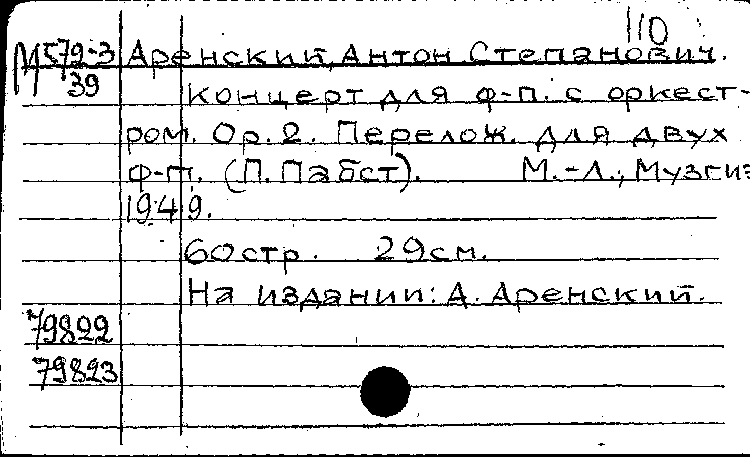 110
М 579-3 Аренский, Антон Степанович.
39
Концерт для ф-п. с оркест-
ром. Ор. 2. Перелож. для двух
ф-п. (П. Пабст). М.-Л., Музгиз
1949.
60стр. 29см.
На издании: А. Аренский.
79822
79823